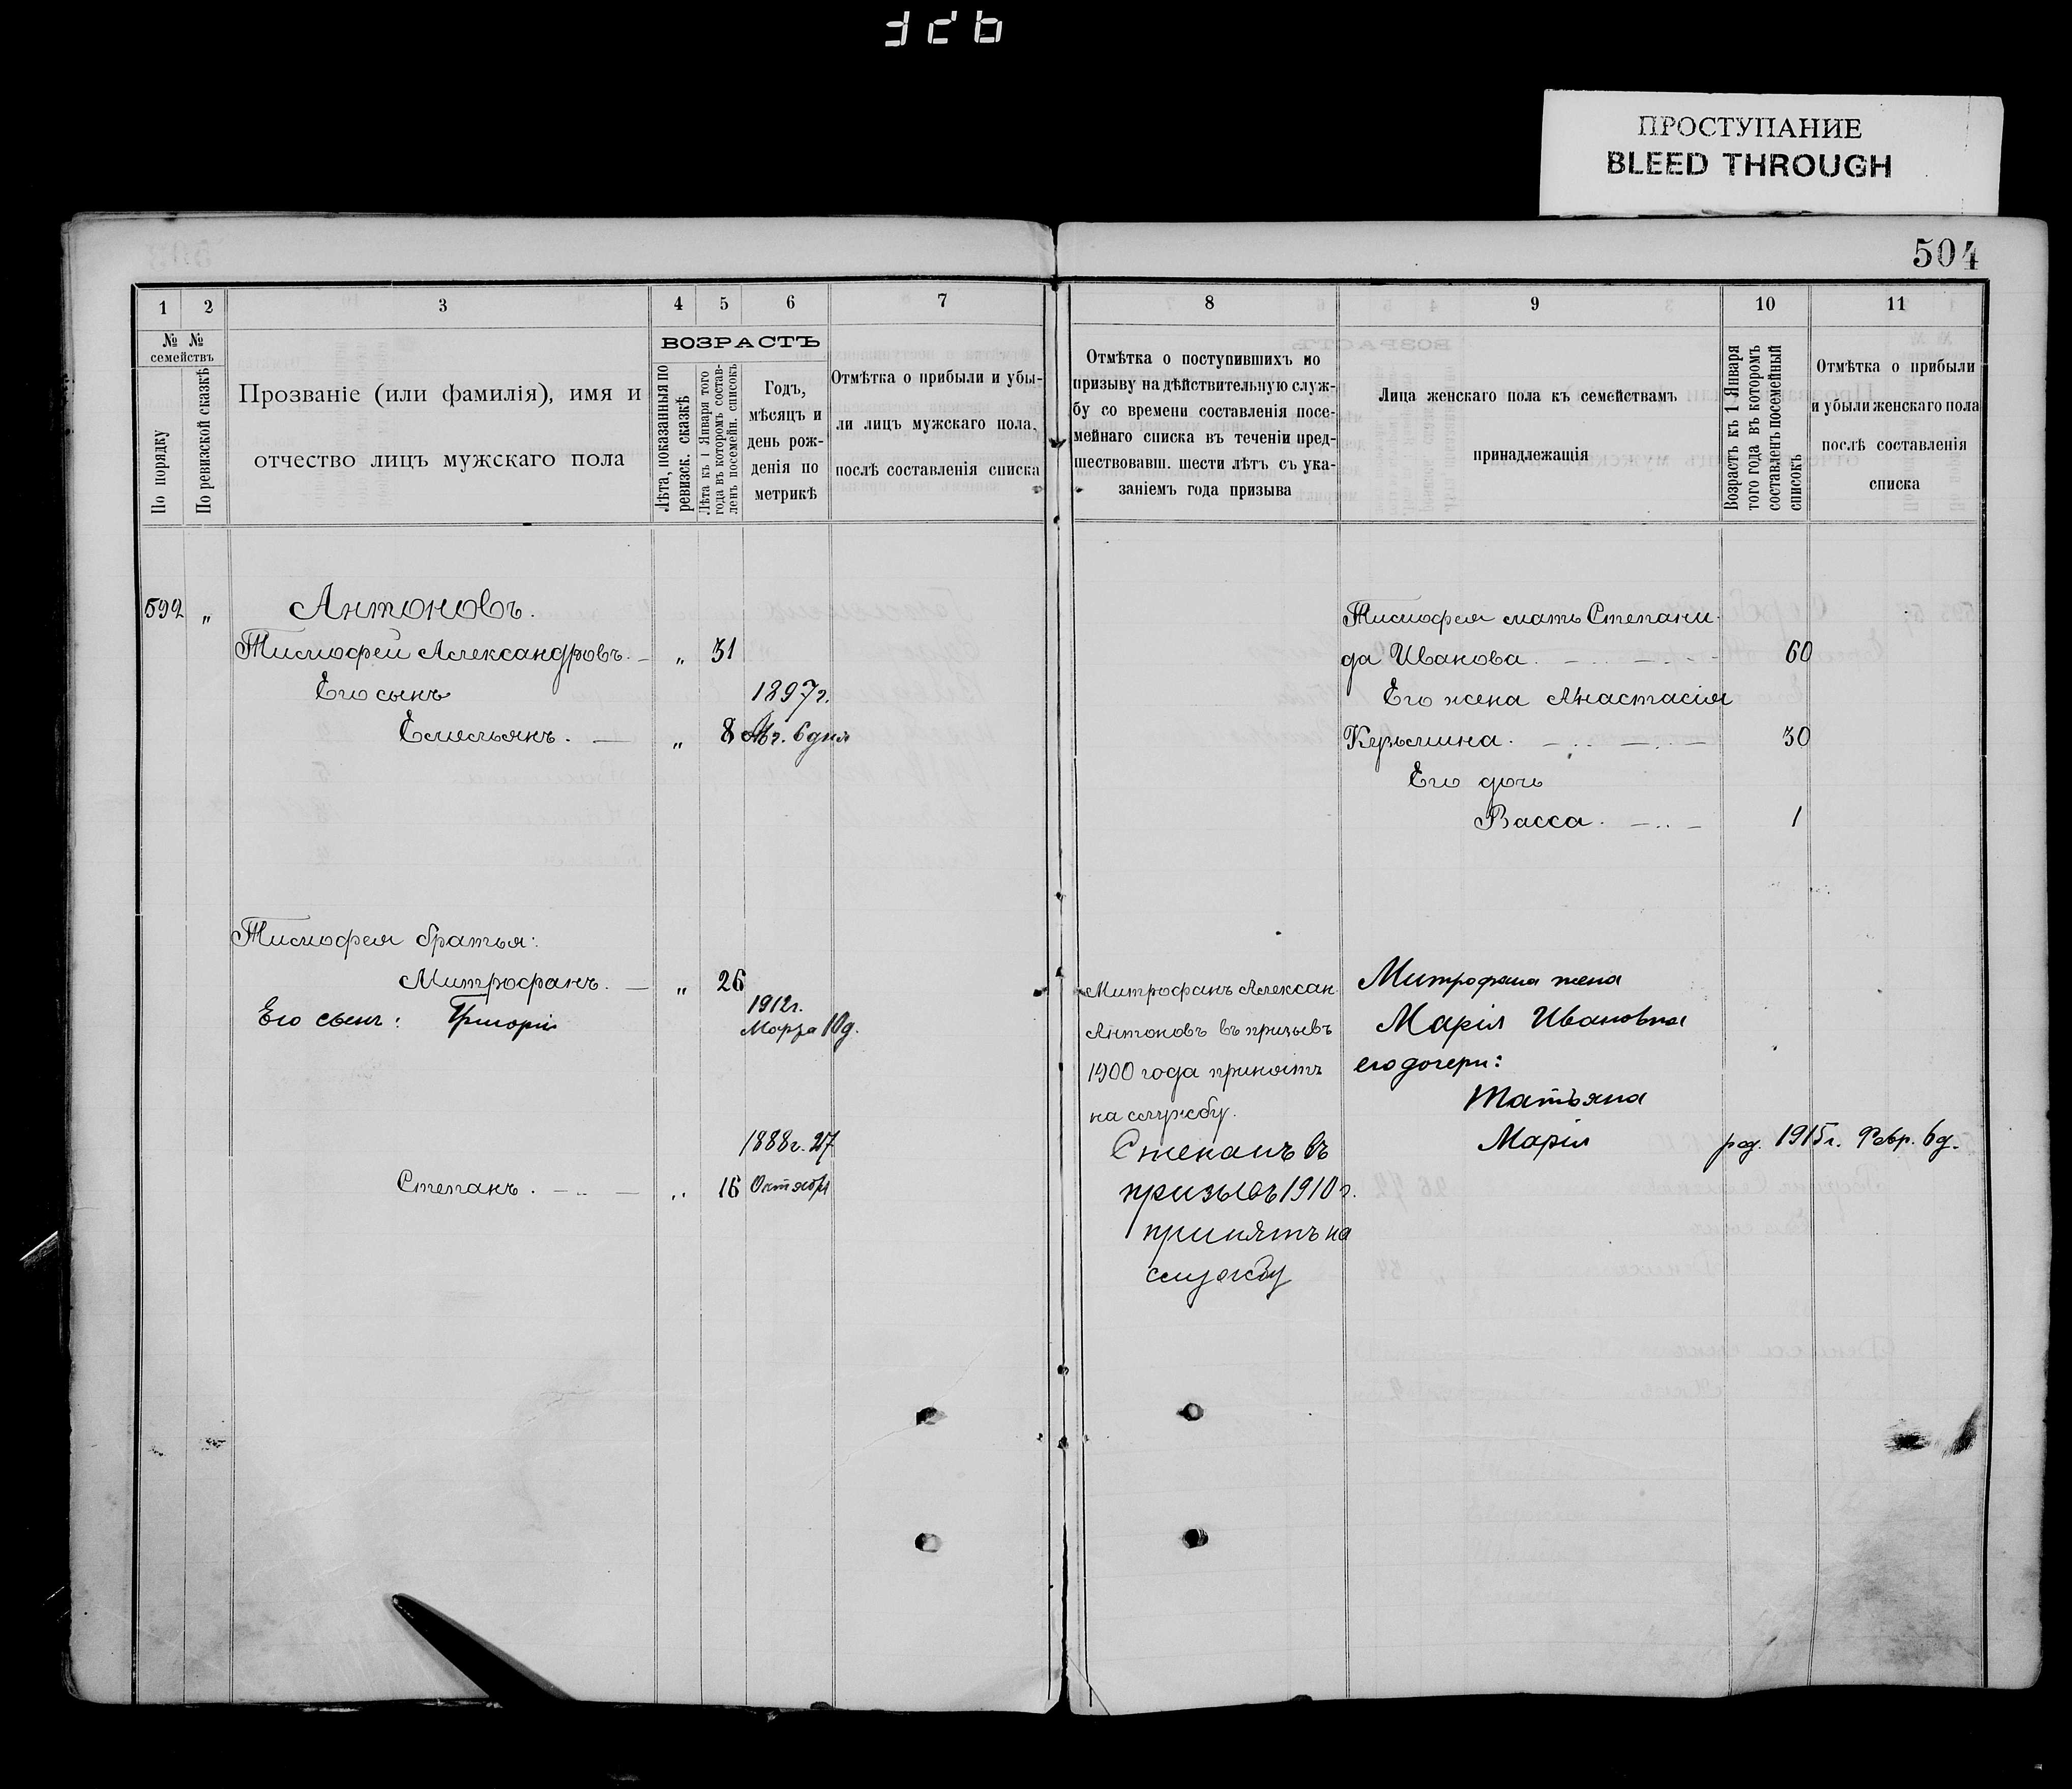 ПРОСТУПАНИЕ
BLEED THROUGH
504
1 2 3 4 5 6 7
№ № семействъ
По порядку
По ревизской сказкѣ
Прозваніе (или фамилія), имя и
отчество лицъ мужскаго пола
ВОЗРАСТЪ
Лѣта, показанныя по
ревизск. сказкѣ
Лѣта къ 1 Января того
года въ которомъ состав-
ленъ посемейн. списокъ
Годъ,
мѣсяцъ и
день рож-
денія по
метрикѣ
Отмѣтка о прибыли и убы-
ли лицъ мужскаго пола,
послѣ составленія списка
592 „ Антоновъ.
Тимофей Александровъ. — „ 31
Его сынъ 1897г.
Емельянъ. — „ 8 Авг. 6 дня
Тимофея братья:
Митрофанъ. — „ 26
1912г.
Его сынъ: Григорій Марта 10д.
1888г. 27
Степанъ. — „ 16 Октября
8 9 10 11
Отмѣтка о поступившихъ по
призыву на дѣйствительную служ-
бу со времени составленія посе-
мейнаго списка въ теченіи пред-
шествовавш. шести лѣтъ съ ука-
заніемъ года призыва
Лица женскаго пола къ семействамъ
принадлежащія
Возрастъ къ 1 Января
того года въ которомъ
составленъ посемейный
списокъ
Отмѣтка о прибыли
и убыли женскаго пола
послѣ составленія
списка
Тимофея мать Степани-
да Иванова. — 60
Его жена Анастасія
Кузьмина. — 30
Его дочь
Васса. — 1
Митрофанъ Алексан.
Антоновъ въ призывъ
1900 года принятъ
на службу.
Степанъ въ
призывъ 1910 г.
принятъ на
службу
Митрофана жена
Марія Ивановна
его дочери:
Татьяна
Марія род. 1915г. Февр. 6д.